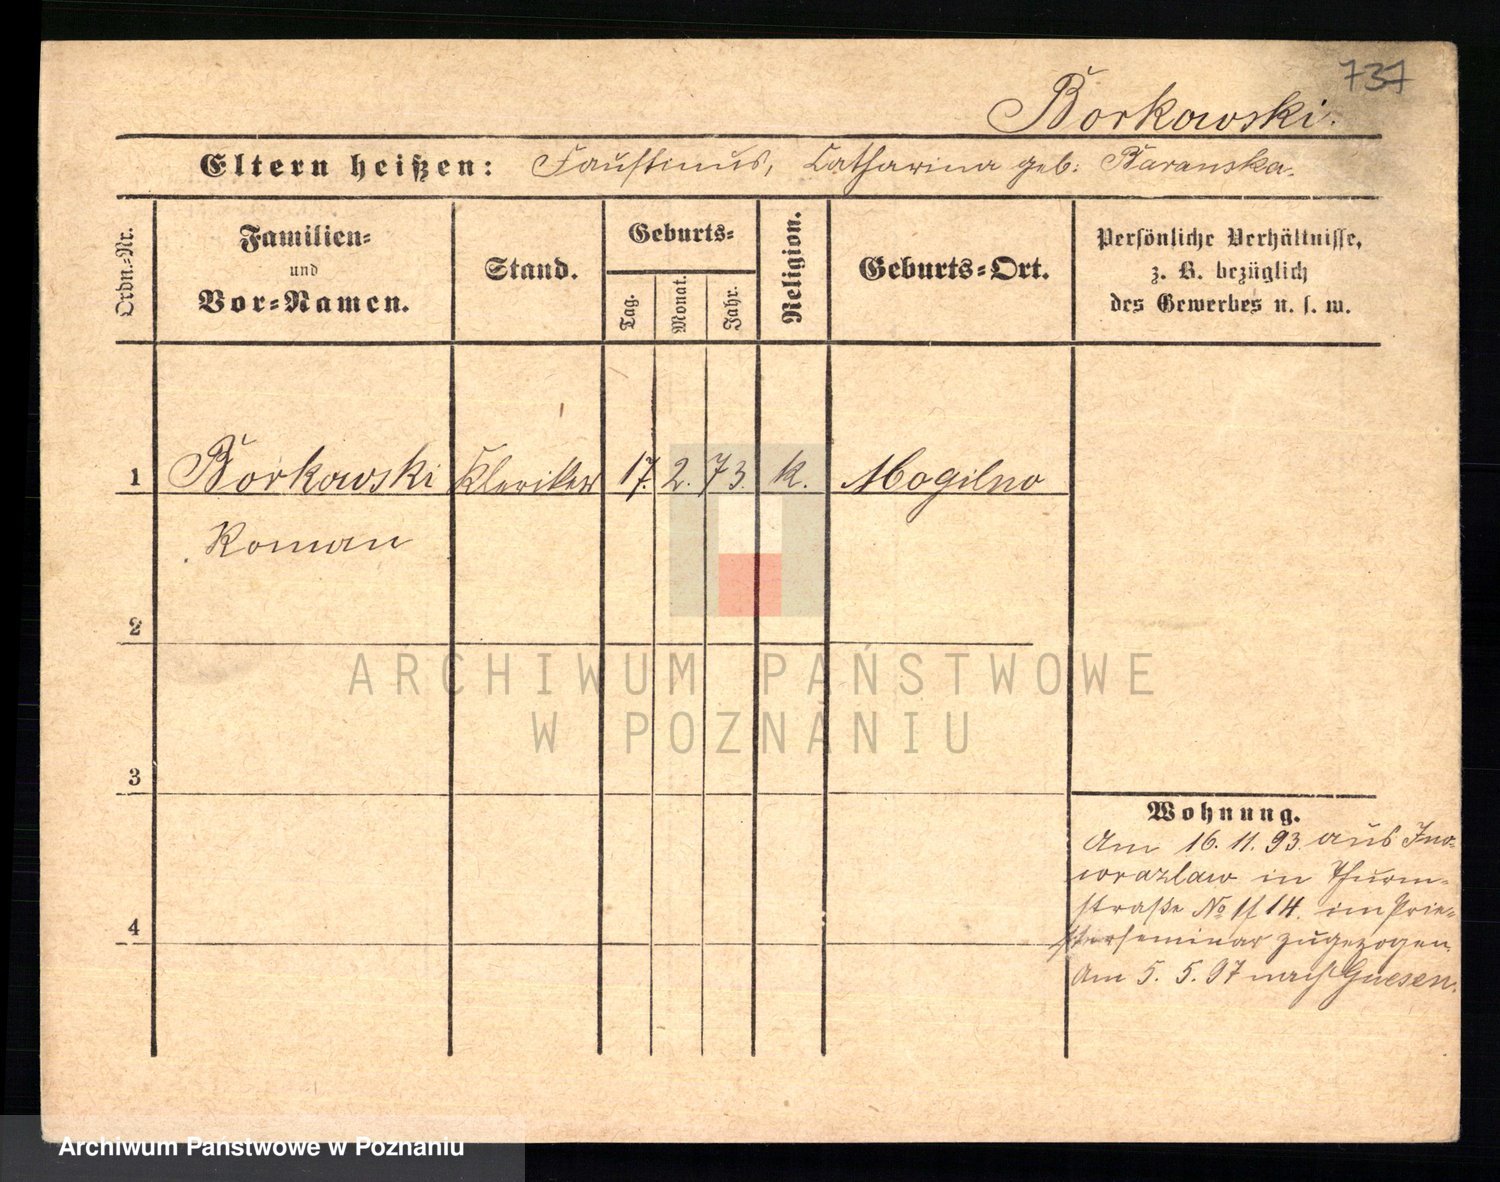 737
Borkowski.
Eltern heißen: Faustinus, Catharina geb: Baranska.
Ordn.-Nr.
Familien-
und
Vor-Namen.
Stand.
Geburts-
Tag.
Monat.
Jahr.
Religion.
Geburts-Ort.
Persönliche Verhältnisse,
z. B. bezüglich
des Gewerbes u. s. w.
1 Borkowski Kleriker 17. 2. 73. k. Mogilno
Roman
2
ARCHIWUM PAŃSTWOWE
W POZNANIU
3
Wohnung.
Am 16. 11. 93. aus Ino-
wrazlaw in Thurm-
straße No 14. im Prie-
sterseminar zugezogen.
4
Am 5. 5. 97 nach Gnesen.
Archiwum Państwowe w Poznaniu